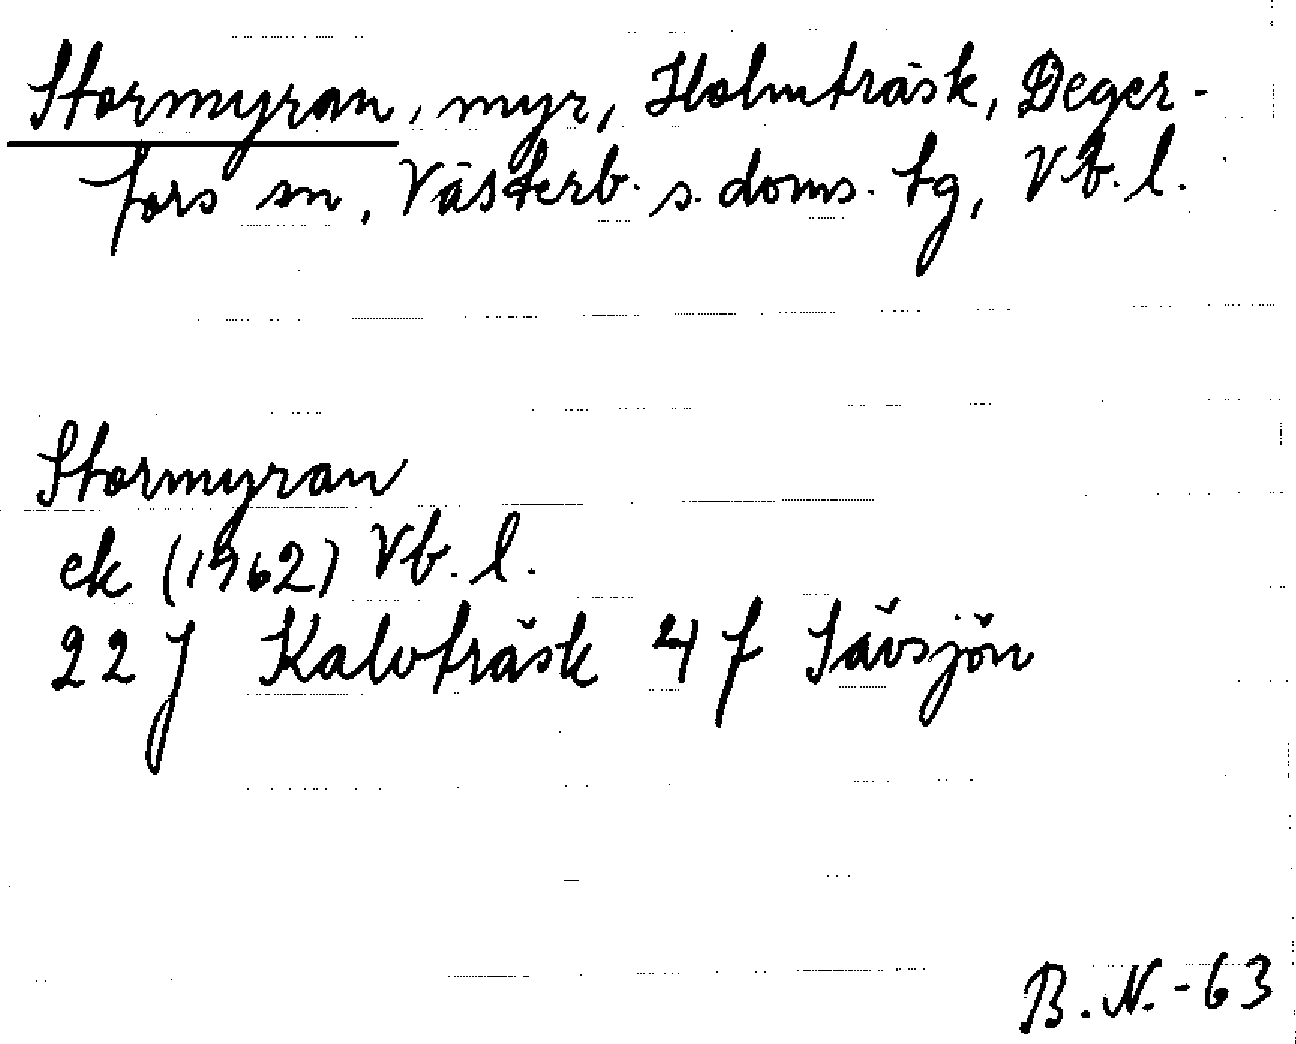 Stormyran, myr, Holmträsk, Deger-
fors sn, Västerb. s. doms. tg, Vb. l.
Stormyran
ek (1962) Vb. l.
22 J Kalvträsk 4 f Sävsjön
B. N. - 63